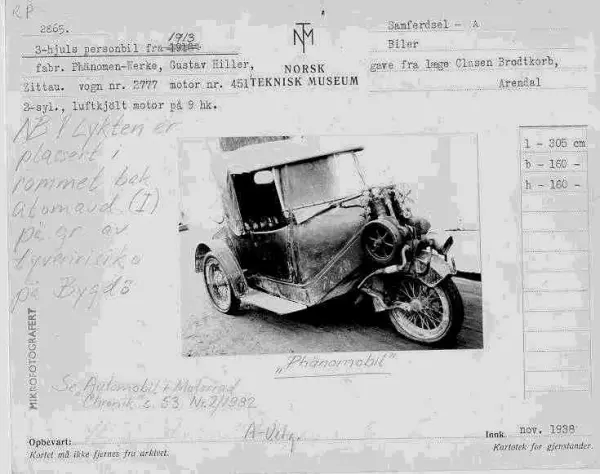 RP
2865.
1913
3-hjuls personbil fra 1912
fabr. Phänomen-Werke, Gustav Hiller,
Zittau. vogn nr. 2777 motor nr. 451
2-syl., luftkjølt motor på 9 hk.
NTM
NORSK
TEKNISK MUSEUM
Samferdsel - A
Biler
gave fra læge Clasen Brodtkorb,
Arendal
NB! Lykten er
plassert i
rommet bak
atomavd (I)
på gr av
tyveririsiko
på Bygdø
l - 305 cm
b - 160 -
h - 160 -
"Phänomobil"
Se Automobil & Motorrad
Chronik s. 53 Nr. 7/1982
MIKROFOTOGRAFERT
Opbevart:
A-Utg.
Innk. nov. 1938
Kortet må ikke fjernes fra arkivet.
Kartotek for gjenstander.